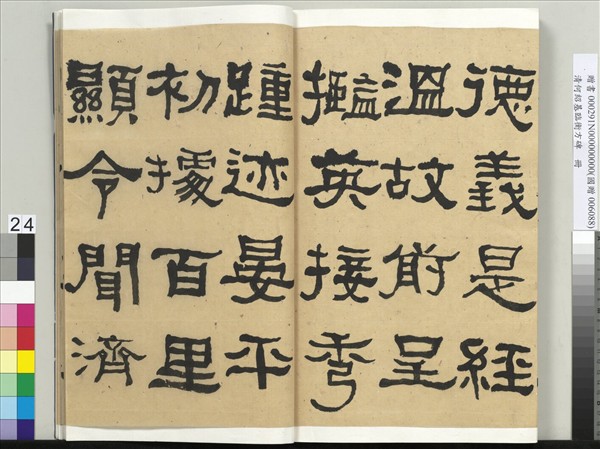 贈書 000291N000000000(國贈 006088)
清何紹基臨衡方碑 冊
德義是經
溫故前呈
㩜英接秀
踵迹晏平
初據百里
顯令聞濟
24